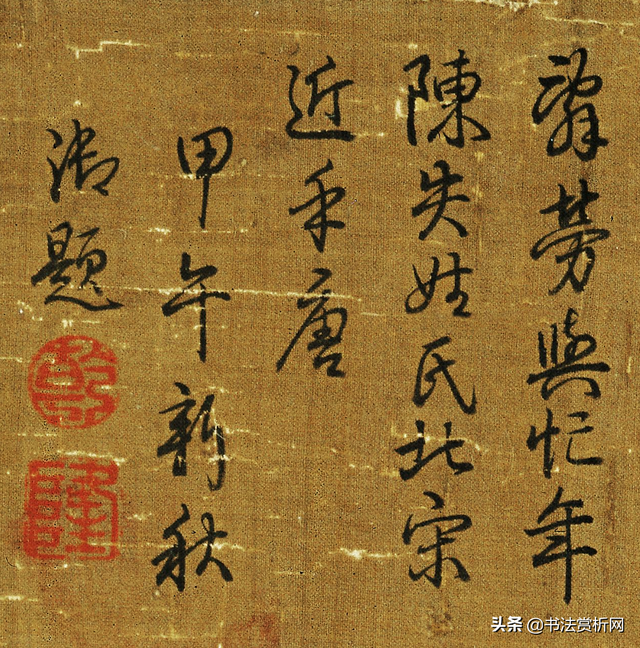 辭勞與忙年
陳失姓氏北宋
近乎唐
甲午新秋
御題
乾
隆
头条 @书法赏析网